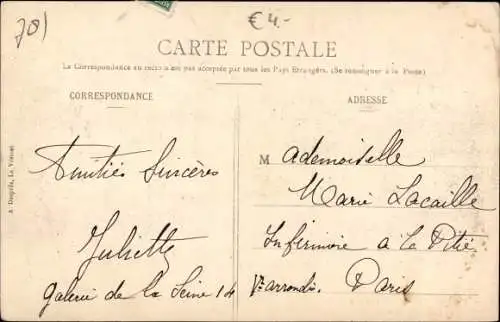 701
€4.-
CARTE POSTALE
La Correspondance au recto n'est pas acceptée par tous les Pays Etrangers. (Se renseigner à la Poste)
CORRESPONDANCE
ADRESSE
Amitiés Sincères
Juliette
Galerie de la Seine 14
M ademoiselle
Marie Lacaille
Infirmière à la Pitié
Ve arrondis. Paris
A. Despeds, Le Vésinet